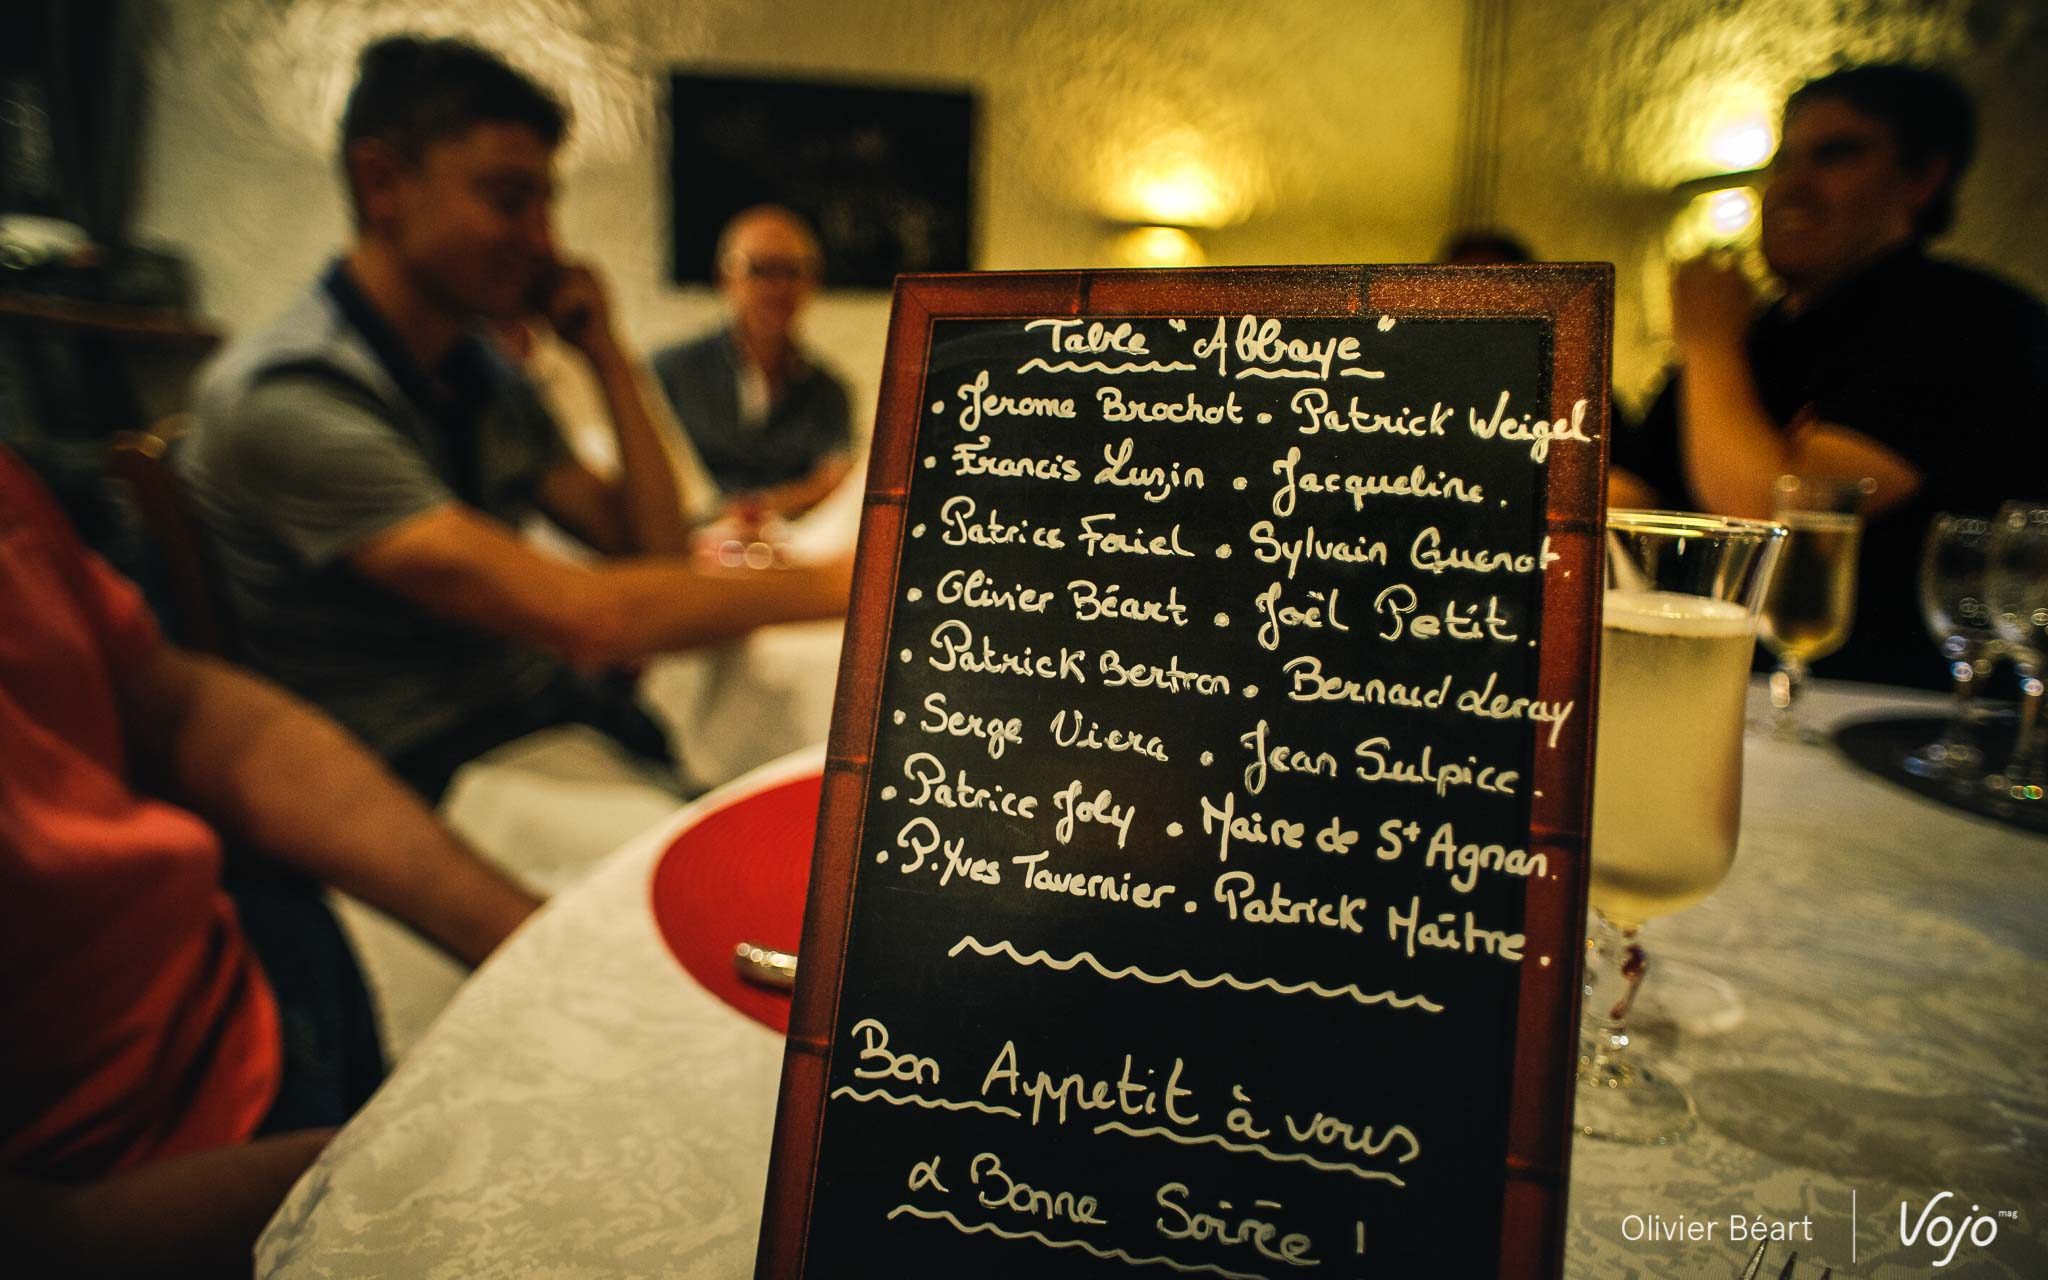 Table "Abbaye"
• Jerome Brochot • Patrick Weigel.
• Francis Luzin • Jacqueline.
• Patrice Fouiel • Sylvain Guenot.
• Olivier Béart • Joël Petit.
• Patrick Bertron • Bernard Leray
• Serge Viera • Jean Sulpice.
• Patrice Joly • Maire de St Agnan.
• P.Yves Tavernier • Patrick Maître.
Bon Appetit à vous
& Bonne Soirée !
Olivier Béart
Vojo mag